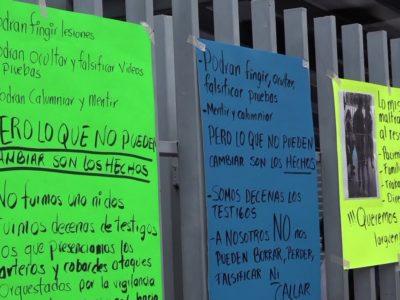 Podran fingir lesiones
Podran ocultar y falsificar Videos
Pruebas
Podran Calumniar y Mentir
PERO LO QUE NO PUEDEN
CAMBIAR SON LOS HECHOS
No fuimos uno ni dos
Fuimos decenas de testigos
los que presenciamos los
arteros y cobardes ataques
Orquestados por la vigilancia
-Podran fingir, ocultar,
falsificar pruebas
-Mentir y calumniar
PERO LO QUE NO PUEDEN
CAMBIAR SON LOS HECHOS
-SOMOS DECENAS LOS
TESTIGOS
-A NOSOTROS NO nos
PUEDEN BORRAR, PERDER,
FALSIFICAR Ni
CALLAR
Lo mis
maltra
al res
-Pacien
-Famili
-Traba
-Dire
!!!Queremos
larguen